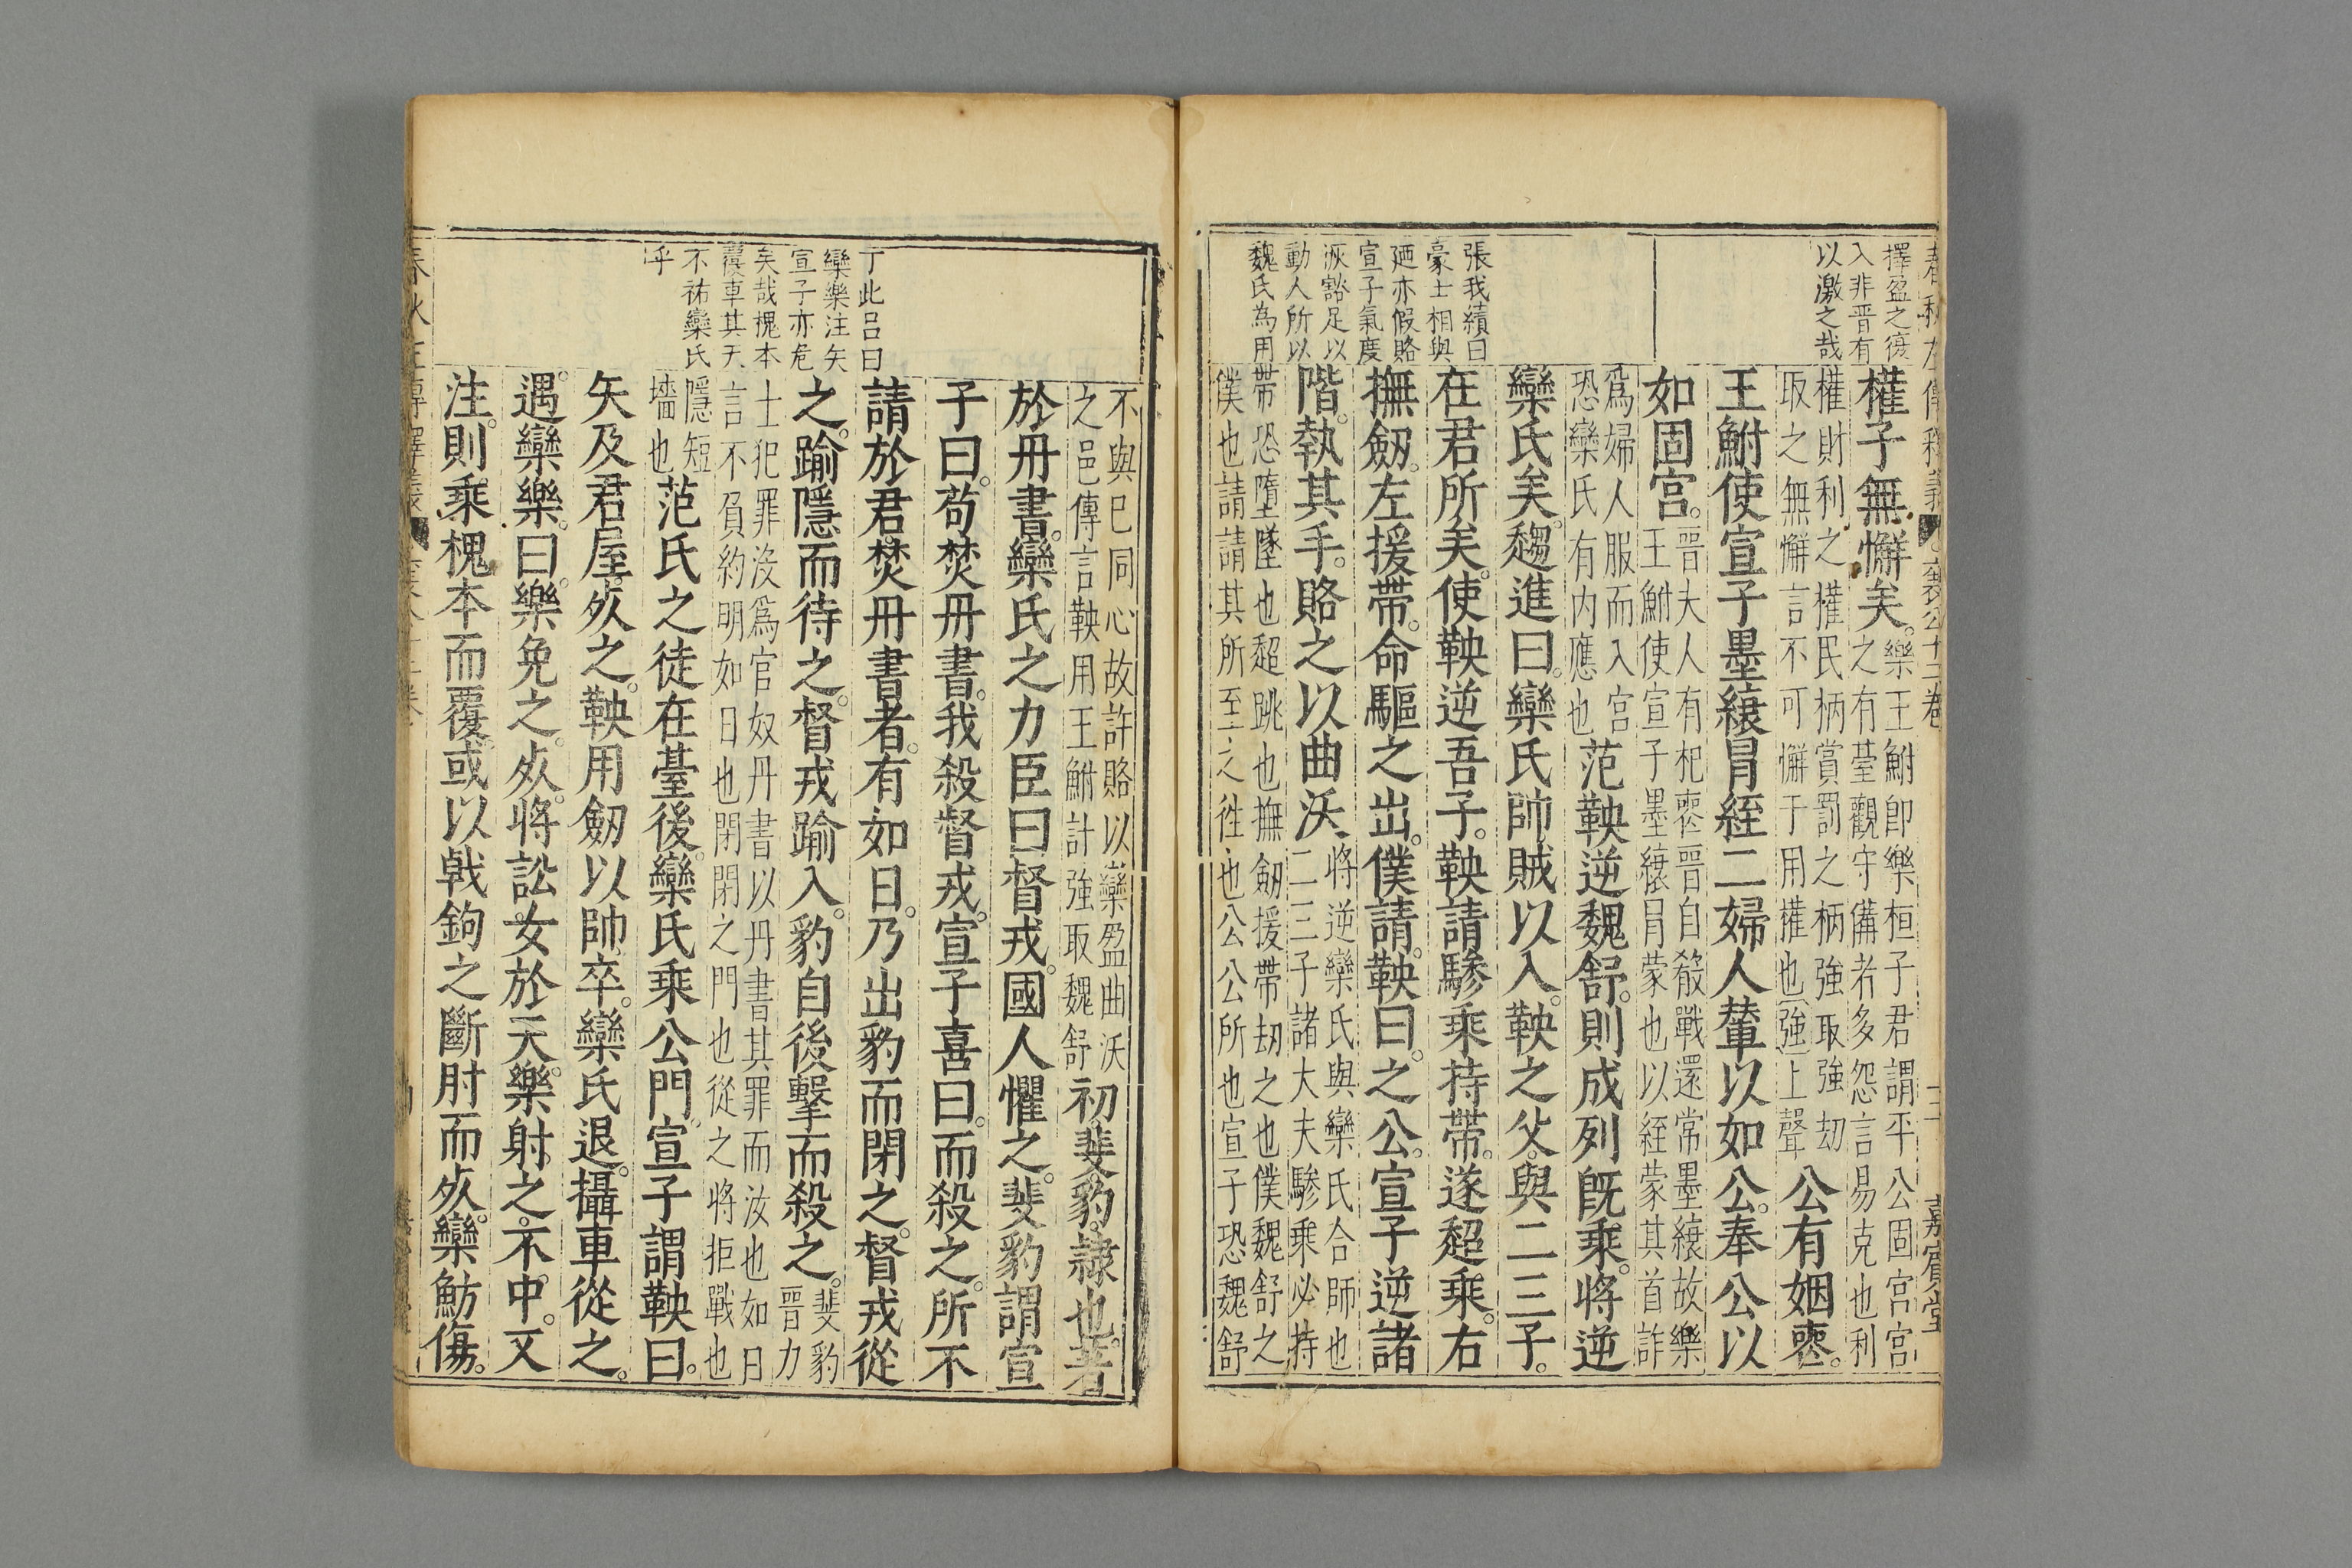 擇盈之復
入非晋有
以激之哉
張我績曰
豪士相與
廼亦假賂
宣子氣度
恢豁足以
動人所以
魏氏為用
權子無懈矣。樂王鮒即樂桓子君謂平公固宮宮
之有臺觀守備者多怨言易克也利
權財利之權民柄賞罰之柄強取強刼
取之無懈言不可懈于用權也(強)上聲
公有姻喪。
王鮒使宣子墨縗冒絰二婦人輦以如公。奉公以
如固宮。晋夫人有杞喪晋自殽戰還常墨縗故樂
王鮒使宣子墨縗冒蒙也以絰蒙其首詐
爲婦人服而入宮
恐欒氏有内應也
范鞅逆魏舒。則成列既乘。將逆
欒氏矣。趨進曰。欒氏帥賊以入。鞅之父。與二三子。
在君所矣。使鞅逆吾子。鞅請驂乘持帶。遂超乘。右
撫劒。左援帶。命驅之出。僕請。鞅曰。之公。宣子逆諸
階。執其手。賂之以曲沃、將逆欒氏與欒氏合師也
二三子諸大夫驂乘必持
帶恐墮墜也超跳也撫劒援帶刼之也僕魏舒之
僕也請請其所至之徃也公公所也宣子恐魏舒
嘉賓堂
丁此呂曰
欒樂注矢
宣子亦危
矣哉槐本
覆車其天
不祐欒氏
乎
不與已同心故許賂以欒盈曲沃
之邑傳言鞅用王鮒計強取魏舒
初。斐豹。隷也。著
於丹書。欒氏之力臣曰督戎。國人懼之。斐豹謂宣
子曰。苟焚丹書。我殺督戎。宣子喜曰。而殺之。所不
請於君。焚丹書者。有如日。乃出豹而閉之。督戎從
之。踰隱而待之。督戎踰入。豹自後擊而殺之。斐豹
晋力
士犯罪没爲官奴丹書以丹書其罪而汝也如日
言不負約明如日也閉閉之門也從之將拒戰也
隱短
墻也
范氏之徒在臺後。欒氏乘公門。宣子謂鞅曰。
矢及君屋。死之。鞅用劒以帥。卒。欒氏退。攝車從之。
遇欒樂。曰。樂免之。死。將訟女於天。樂射之。不中。又
注。則乘槐本而覆。或以戟鉤之斷肘而死。欒魴傷。